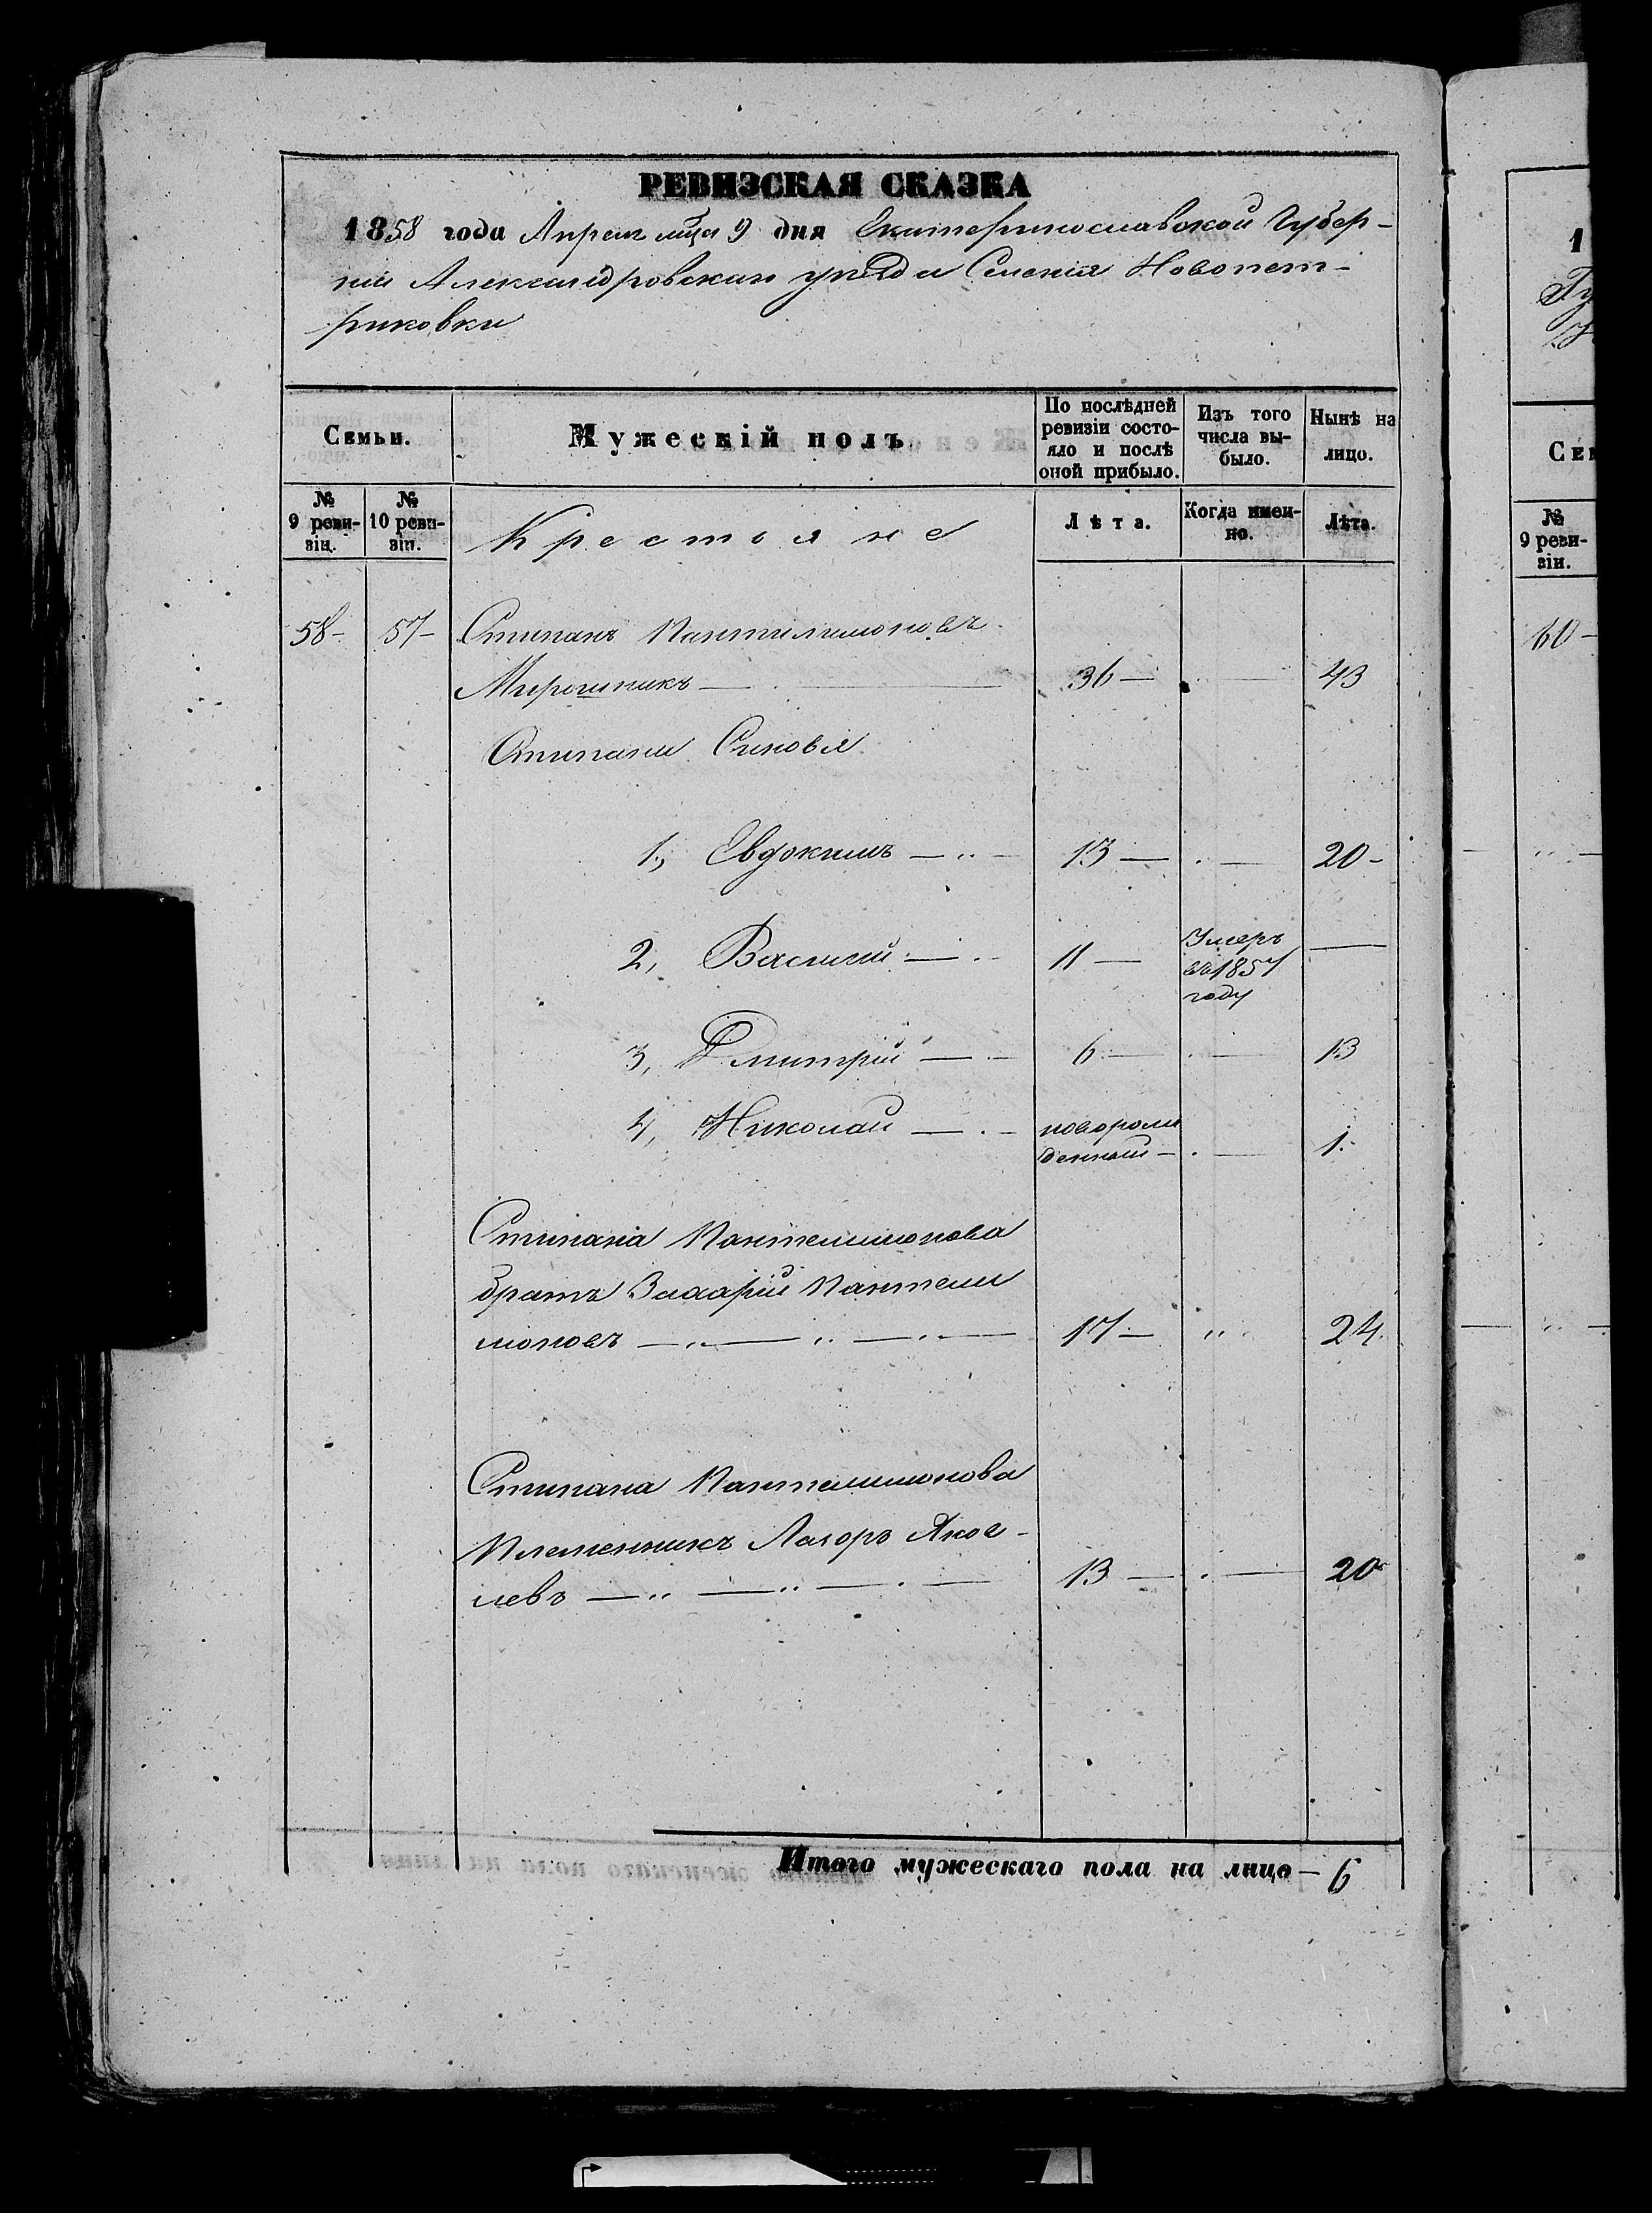 РЕВИЗСКАЯ СКАЗКА
1858 года Апреля мца 9 дня Екатеринославской Губер-
нии Александровскаго уезда Селения Новопет-
риковки
Семьи.
Мужескій полъ
По послѣдней ревизіи состо-яло и послѣ оной прибыло.
Изъ того числа вы-было.
Нынѣ на лицо.
№ 9 реви-зіи.
№ 10 реви-зіи.
Крестьяне
Лѣта.
Когда имен-но.
Лѣта.
58- 57- Стипанъ Пантилимоновъ
Мирошникъ — 36 — — 43
Стипана Синовья
1, Евдокимъ — 13 — — 20-
2, Василий — 11 — Умеръ въ 1857 году —
3, Дмитрій — 6 — — 13
4, Николай — новорож денный — — 1.
Стипана Пантелимонова
братъ Захарій Пантели
моновъ — 17 — 24
Стипана Пантелимонова
Племенникъ Лазоръ Яков-
левъ — 13 — — 20
Итого мужескаго пола на лицо — 6
1
Гу
Сем
№ 9 реви-зіи.
60-